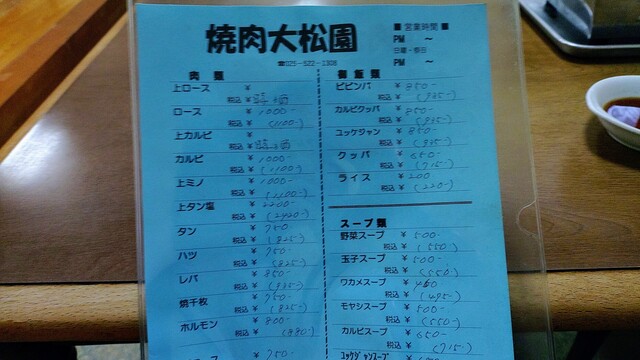 焼肉大松園
☎025-522-1308
■ 営業時間 ■
PM ～
日曜・祭日
PM ～
肉類
上ロース ¥
税込 ¥ 時価
ロース ¥ 1000-
税込 ¥ (1100-)
上カルビ ¥
税込 ¥ 時価
カルビ ¥ 1000-
税込 ¥ (1100-)
上ミノ ¥ 1000-
税込 ¥ (1100-)
上タン塩 ¥ 2200-
税込 ¥ (2420-)
タン ¥ 750
税込 ¥ (825-)
ハツ ¥ 750-
税込 ¥ (825-)
レバ ¥ 850-
税込 ¥ (935-)
焼千枚 ¥ 750-
税込 ¥ (825-)
ホルモン ¥ 800-
税込 ¥ (880-)
¥ 750-
御飯類
ビビンバ ¥ 850-
税込 ¥ (935-)
カルビクッパ ¥ 850-
税込 ¥ (935-)
ユッケジャン ¥ 850-
税込 ¥ (935-)
クッパ ¥ 650-
税込 ¥ (715-)
ライス ¥ 200
税込 ¥ (220-)
スープ類
野菜スープ ¥ 500-
税込 ¥ (550-)
玉子スープ ¥ 500-
税込 ¥ (550-)
ワカメスープ ¥ 450
税込 ¥ (495-)
モヤシスープ ¥ 500-
税込 ¥ (550-)
カルビスープ ¥ 650-
税込 ¥ (715-)
ユッケジャンスープ ¥